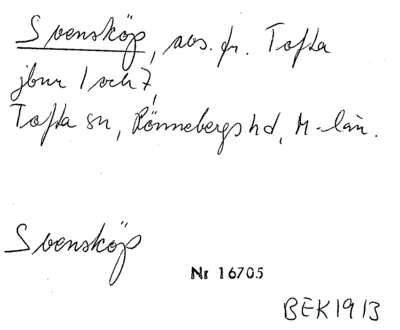 Svensköp, avs. fr. Tofta
jbnr 1 och 7,
Tofta sn, Rönnebergs hd, M-län.
Svensköp
Nr 16705
BEK1913